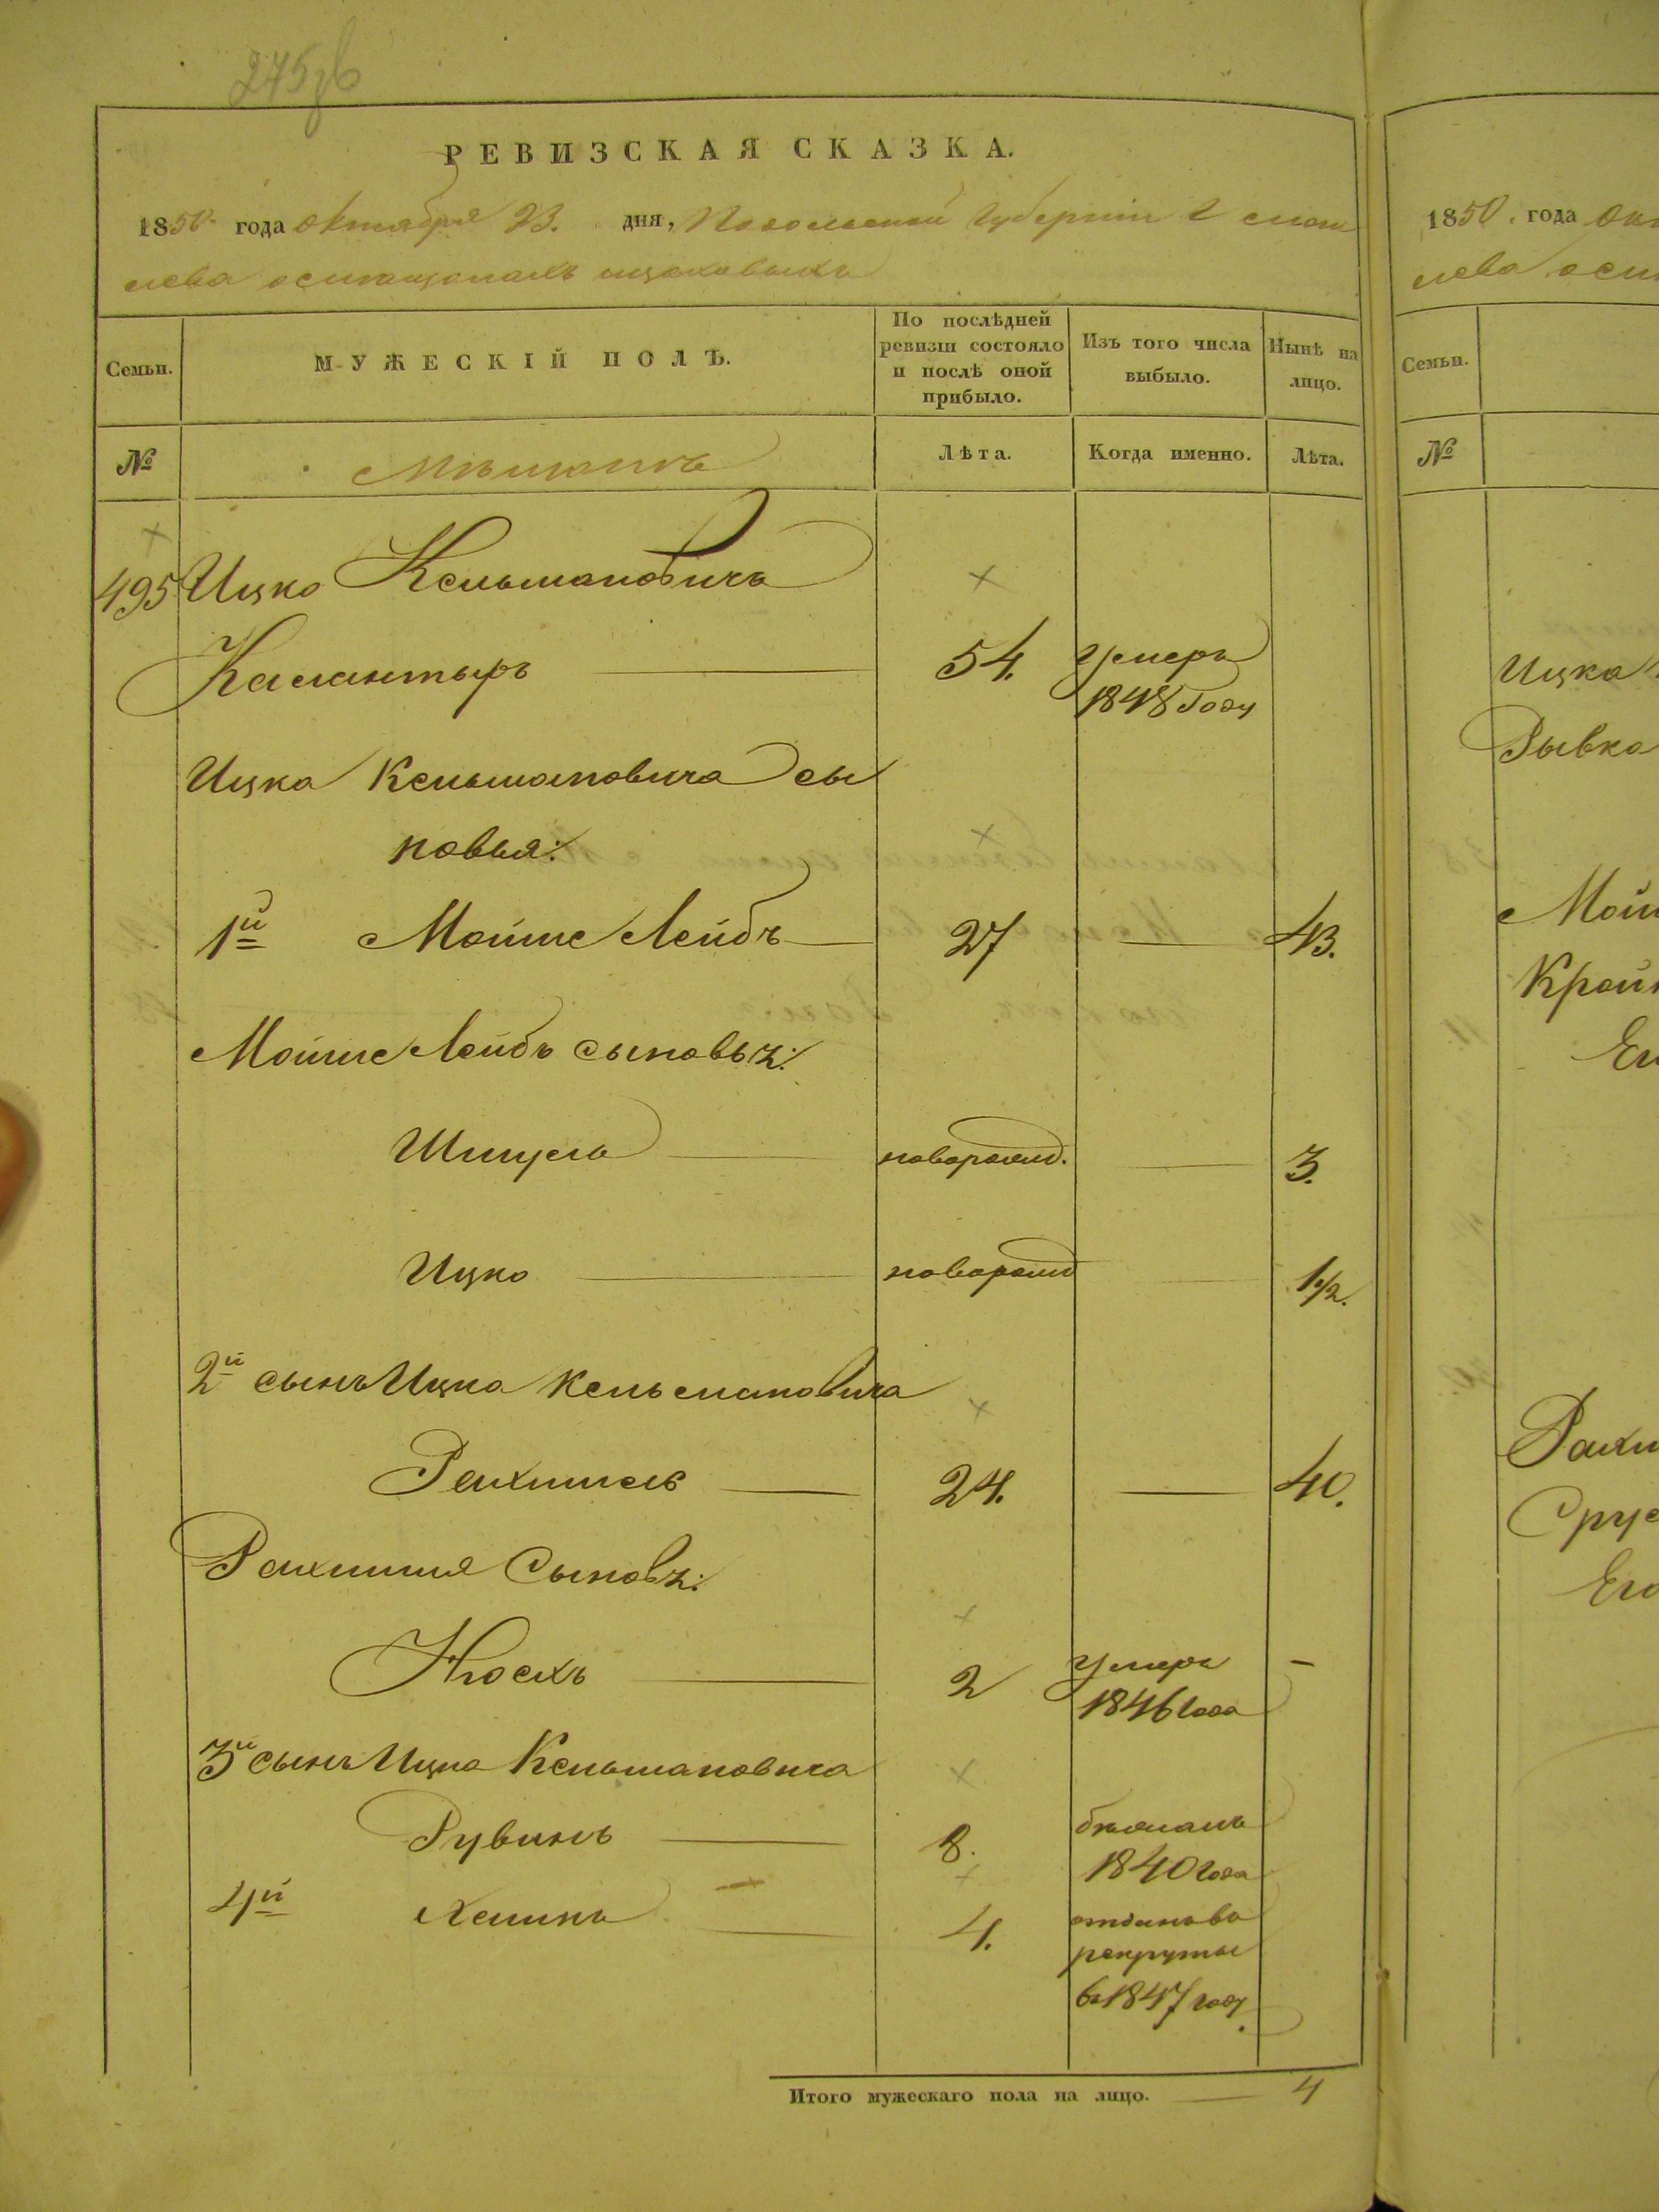 275об
РЕВИЗСКАЯ СКАЗКА.
1850 года октября 23. дня, Подольской Губернiи
Семьи.
МУЖЕСКІЙ ПОЛЪ.
По послѣдней ревизіи состояло и послѣ оной прибыло.
Изъ того числа выбыло.
Нынѣ на лицо.
№
Лѣта.
Когда именно.
Лѣта.
495 Ицко Кельмановичъ
Калантыръ 54. умеръ
1848 году
Ицка Кельмановича сы
новья:
1й Мойше Лейбъ 27 43.
Мойше Лейбъ сыновьz:
Шмуель новорожд. 3.
Ицко новорожд 1 1/2.
2й сынъ Ицка Кельмановича
Рахмиель 24. 40.
Рахмиля Сыновz:
Нюсехъ 2 умеръ -
1846 года
3й сынъ Ицка Кельмановича
Рувинъ 8. бѣжалъ
1840 года
4й Хаимъ 4. отданъ въ
рекруты
въ 1847 году.
Итого мужескаго пола на лицо. 4
1850. года
Семьи.
№
Ицка
Рывка
Мой
Край
Рахи
Сру
Его